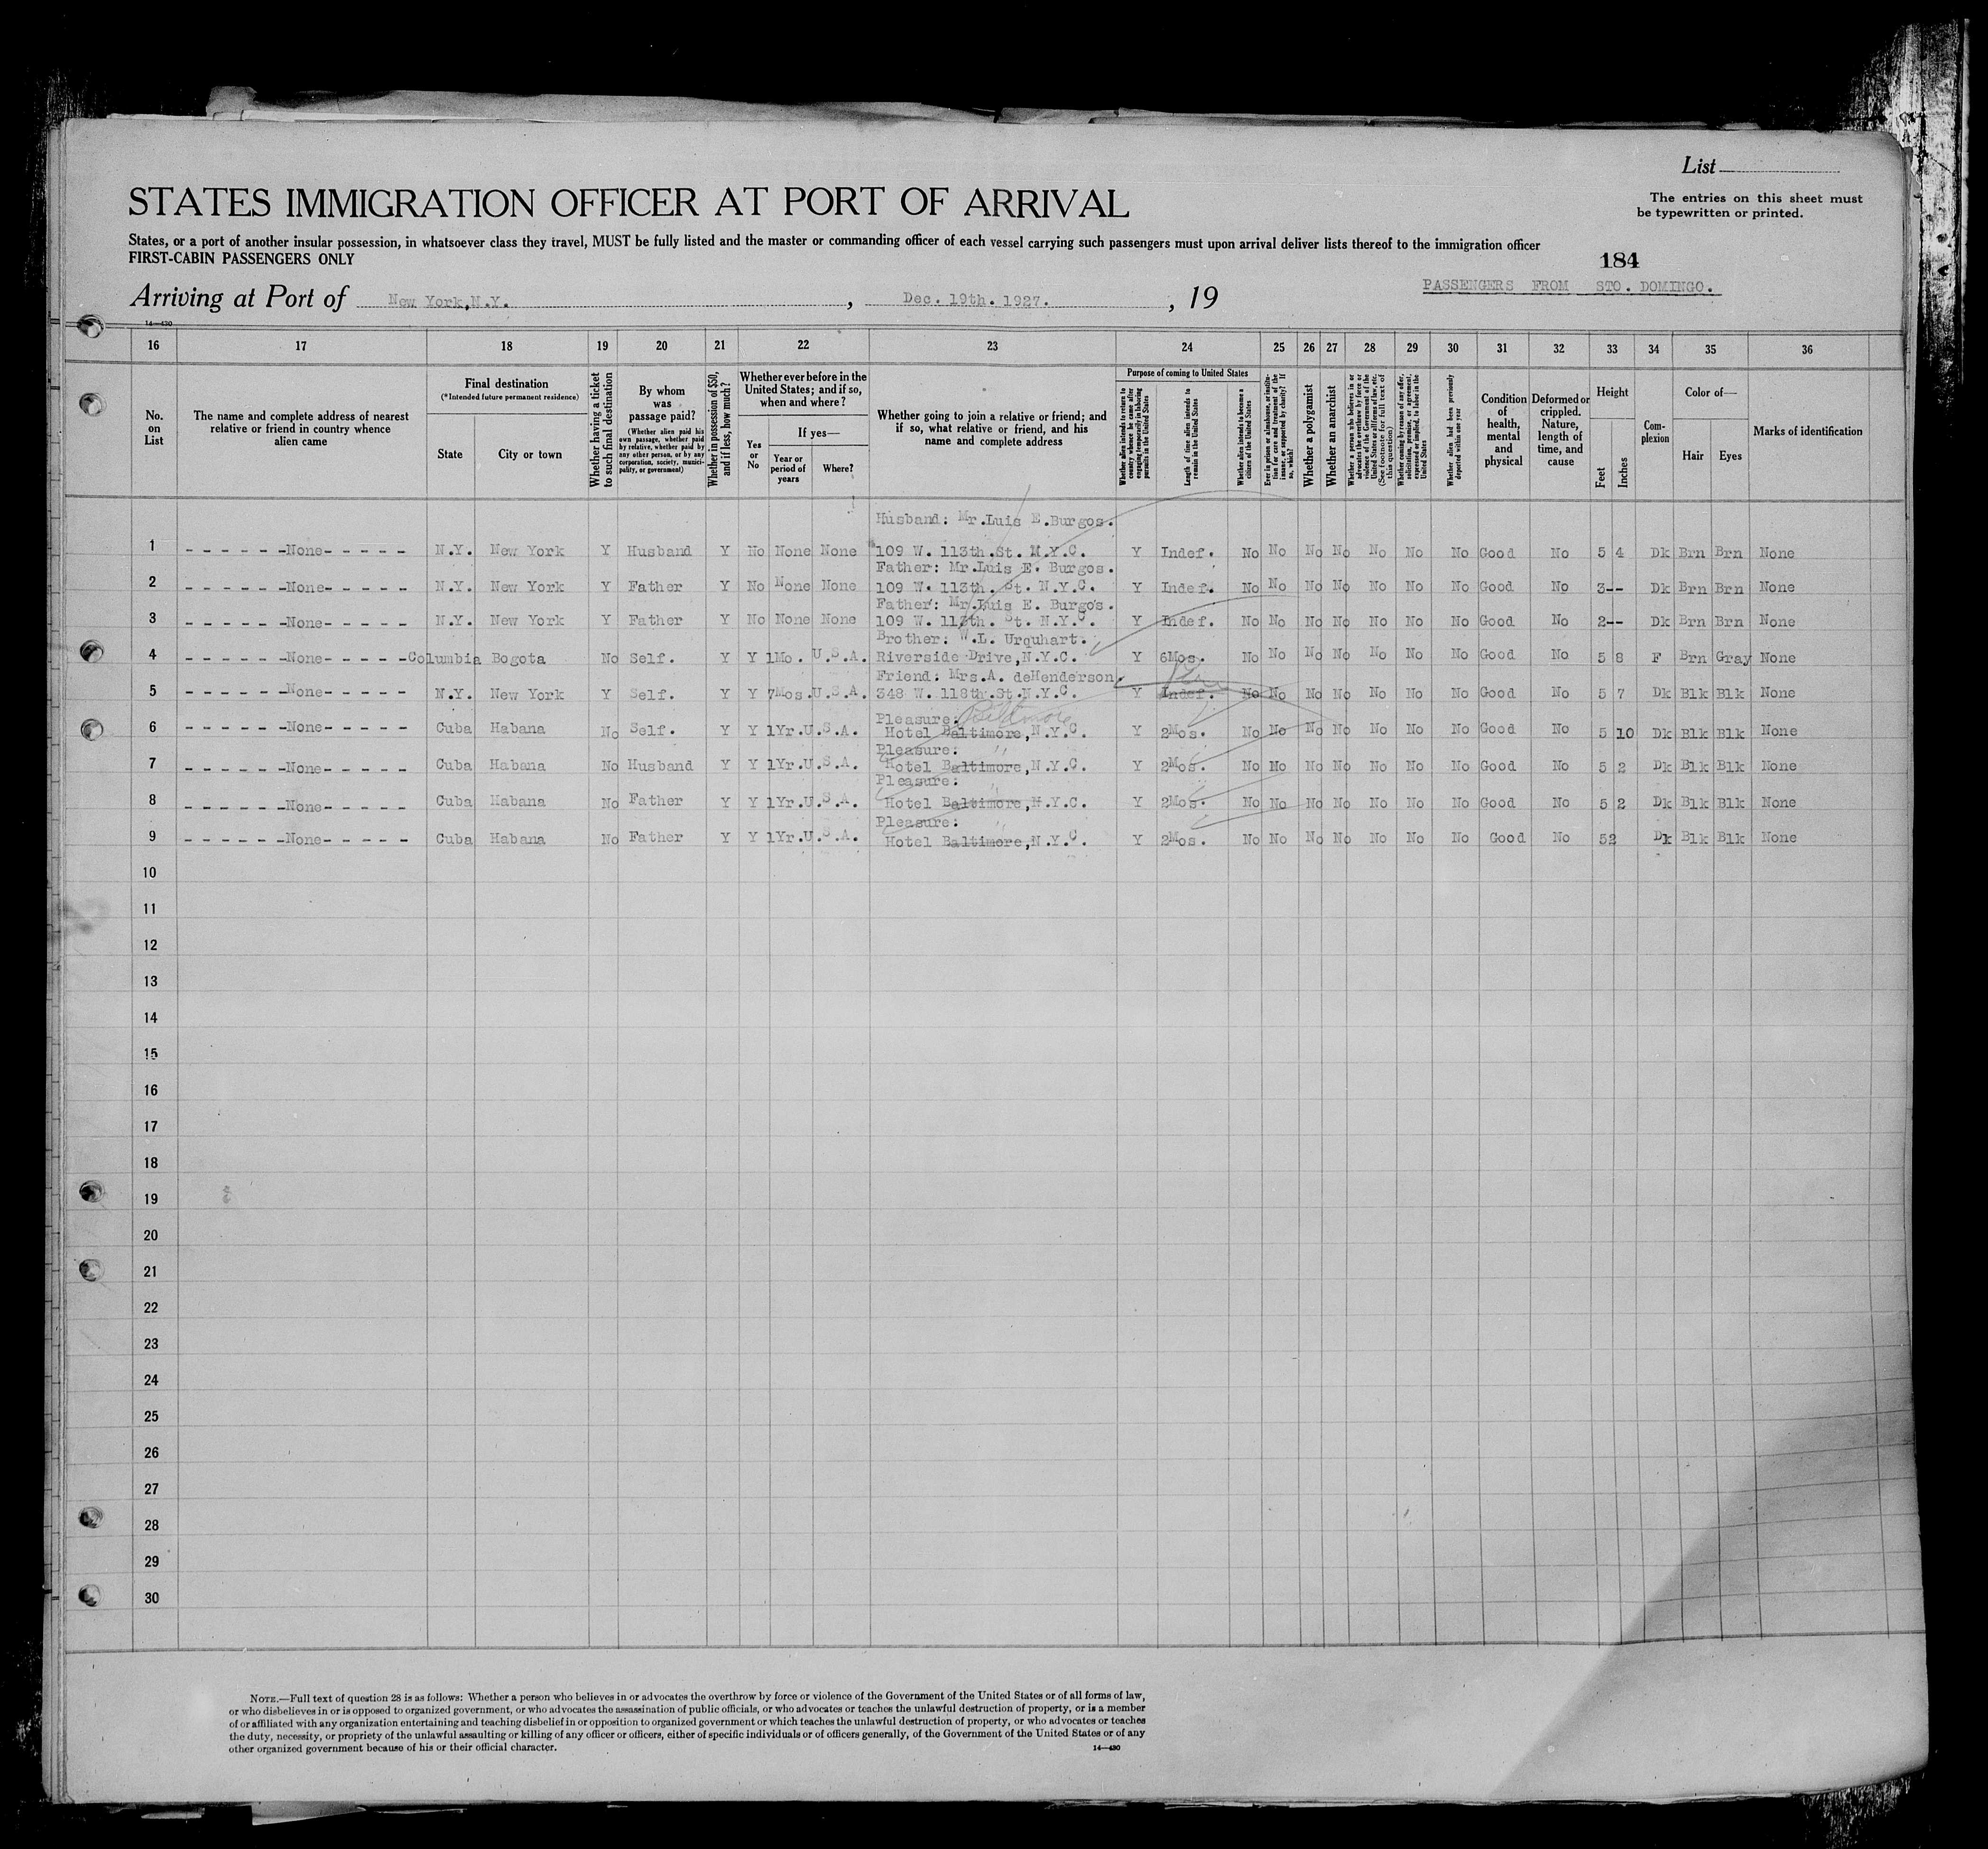 List
STATES IMMIGRATION OFFICER AT PORT OF ARRIVAL
The entries on this sheet must
be typewritten or printed.
States, or a port of another insular possession, in whatsoever class they travel, MUST be fully listed and the master or commanding officer of each vessel carrying such passengers must upon arrival deliver lists thereof to the immigration officer
FIRST-CABIN PASSENGERS ONLY
184
PASSENGERS FROM STO. DOMINGO.
Arriving at Port of New York,N.Y. , Dec. 19th. 1927. , 19
14—430
16 17 18 19 20 21 22 23 24 25 26 27 28 29 30 31 32 33 34 35 36
No. on List
The name and complete address of nearest relative or friend in country whence alien came
Final destination
(*Intended future permanent residence)
State
City or town
Whether having a ticket to such final destination
By whom was passage paid?
(Whether alien paid his own passage, whether paid by relative, whether paid by any other person, or by any corporation, society, municipality, or government)
Whether in possession of $50, and if less, how much?
Whether ever before in the United States; and if so, when and where?
Yes or No
If yes—
Year or period of years
Where?
Whether going to join a relative or friend; and if so, what relative or friend, and his name and complete address
Purpose of coming to United States
Whether alien intends to return to country whence he came after engaging temporarily in laboring pursuits in the United States
Length of time alien intends to remain in the United States
Whether alien intends to become a citizen of the United States
Ever in prison or almshouse, or institution for care and treatment of the insane, or supported by charity? If so, which?
Whether a polygamist
Whether an anarchist
Whether a person who believes in or advocates the overthrow by force or violence of the Government of the United States or all forms of law, etc. (See footnote for full text of this question)
Whether coming by reason of any offer, solicitation, promise, or agreement, expressed or implied, to labor in the United States
Whether alien had been previously deported within one year
Condition of health, mental and physical
Deformed or crippled. Nature, length of time, and cause
Height
Feet
Inches
Complexion
Color of—
Hair
Eyes
Marks of identification
Husband: Mr.Luis E.Burgos.
1 - - - - - -None- - - - - N.Y. New York Y Husband Y No None None 109 W. 113th.St. N.Y.C. Y Indef. No No No No No No No Good No 5 4 Dk Brn Brn None
Father: Mr.Luis E. Burgos.
2 - - - - - -None- - - - - N.Y. New York Y Father Y No None None 109 W. 113th. St. N.Y.C. Y Indef. No No No No No No No Good No 3-- Dk Brn Brn None
Father: Mr.Luis E. Burgos.
3 - - - - - -None- - - - - N.Y. New York Y Father Y No None None 109 W. 113th. St. N.Y.C. Y Indef. No No No No No No No Good No 2-- Dk Brn Brn None
Brother: W.L. Urquhart.
4 - - - - - -None- - - - -Columbia Bogota No Self. Y Y 1Mo. U.S.A. Riverside Drive,N.Y.C. Y 6Mos. No No No No No No No Good No 5 8 F Brn Gray None
Friend: Mrs.A. deHenderson.
5 - - - - - -None- - - - - N.Y. New York Y Self. Y Y 7Mos.U.S.A. 348 W. 118th.St.N.Y.C. Y Indef. No No No No No No No Good No 5 7 Dk Blk Blk None
Pleasure: Biltmore
6 - - - - - -None- - - - - Cuba Habana No Self. Y Y 1Yr.U.S.A. Hotel Baltimore,N.Y.C. Y 2Mos. No No No No No No No Good No 5 10 Dk Blk Blk None
Pleasure: "
7 - - - - - -None- - - - - Cuba Habana No Husband Y Y 1Yr.U.S.A. Hotel Baltimore,N.Y.C. Y 2Mos. No No No No No No No Good No 5 2 Dk Blk Blk None
Pleasure: "
8 - - - - - -None- - - - - Cuba Habana No Father Y Y 1Yr.U.S.A. Hotel Baltimore,N.Y.C. Y 2Mos. No No No No No No No Good No 5 2 Dk Blk Blk None
Pleasure: "
9 - - - - - -None- - - - - Cuba Habana No Father Y Y 1Yr.U.S.A. Hotel Baltimore,N.Y.C Y 2Mos. No No No No No No No Good No 52 Dk Blk Blk None
10
11
12
13
14
15
16
17
18
19
20
21
22
23
24
25
26
27
28
29
30
NOTE.—Full text of question 28 is as follows: Whether a person who believes in or advocates the overthrow by force or violence of the Government of the United States or of all forms of law,
or who disbelieves in or is opposed to organized government, or who advocates the assassination of public officials, or who advocates or teaches the unlawful destruction of property, or is a member
of or affiliated with any organization entertaining and teaching disbelief in or opposition to organized government or which teaches the unlawful destruction of property, or who advocates or teaches
the duty, necessity, or propriety of the unlawful assaulting or killing of any officer or officers, either of specific individuals or of officers generally, of the Government of the United States or of any
other organized government because of his or their official character.
14—430